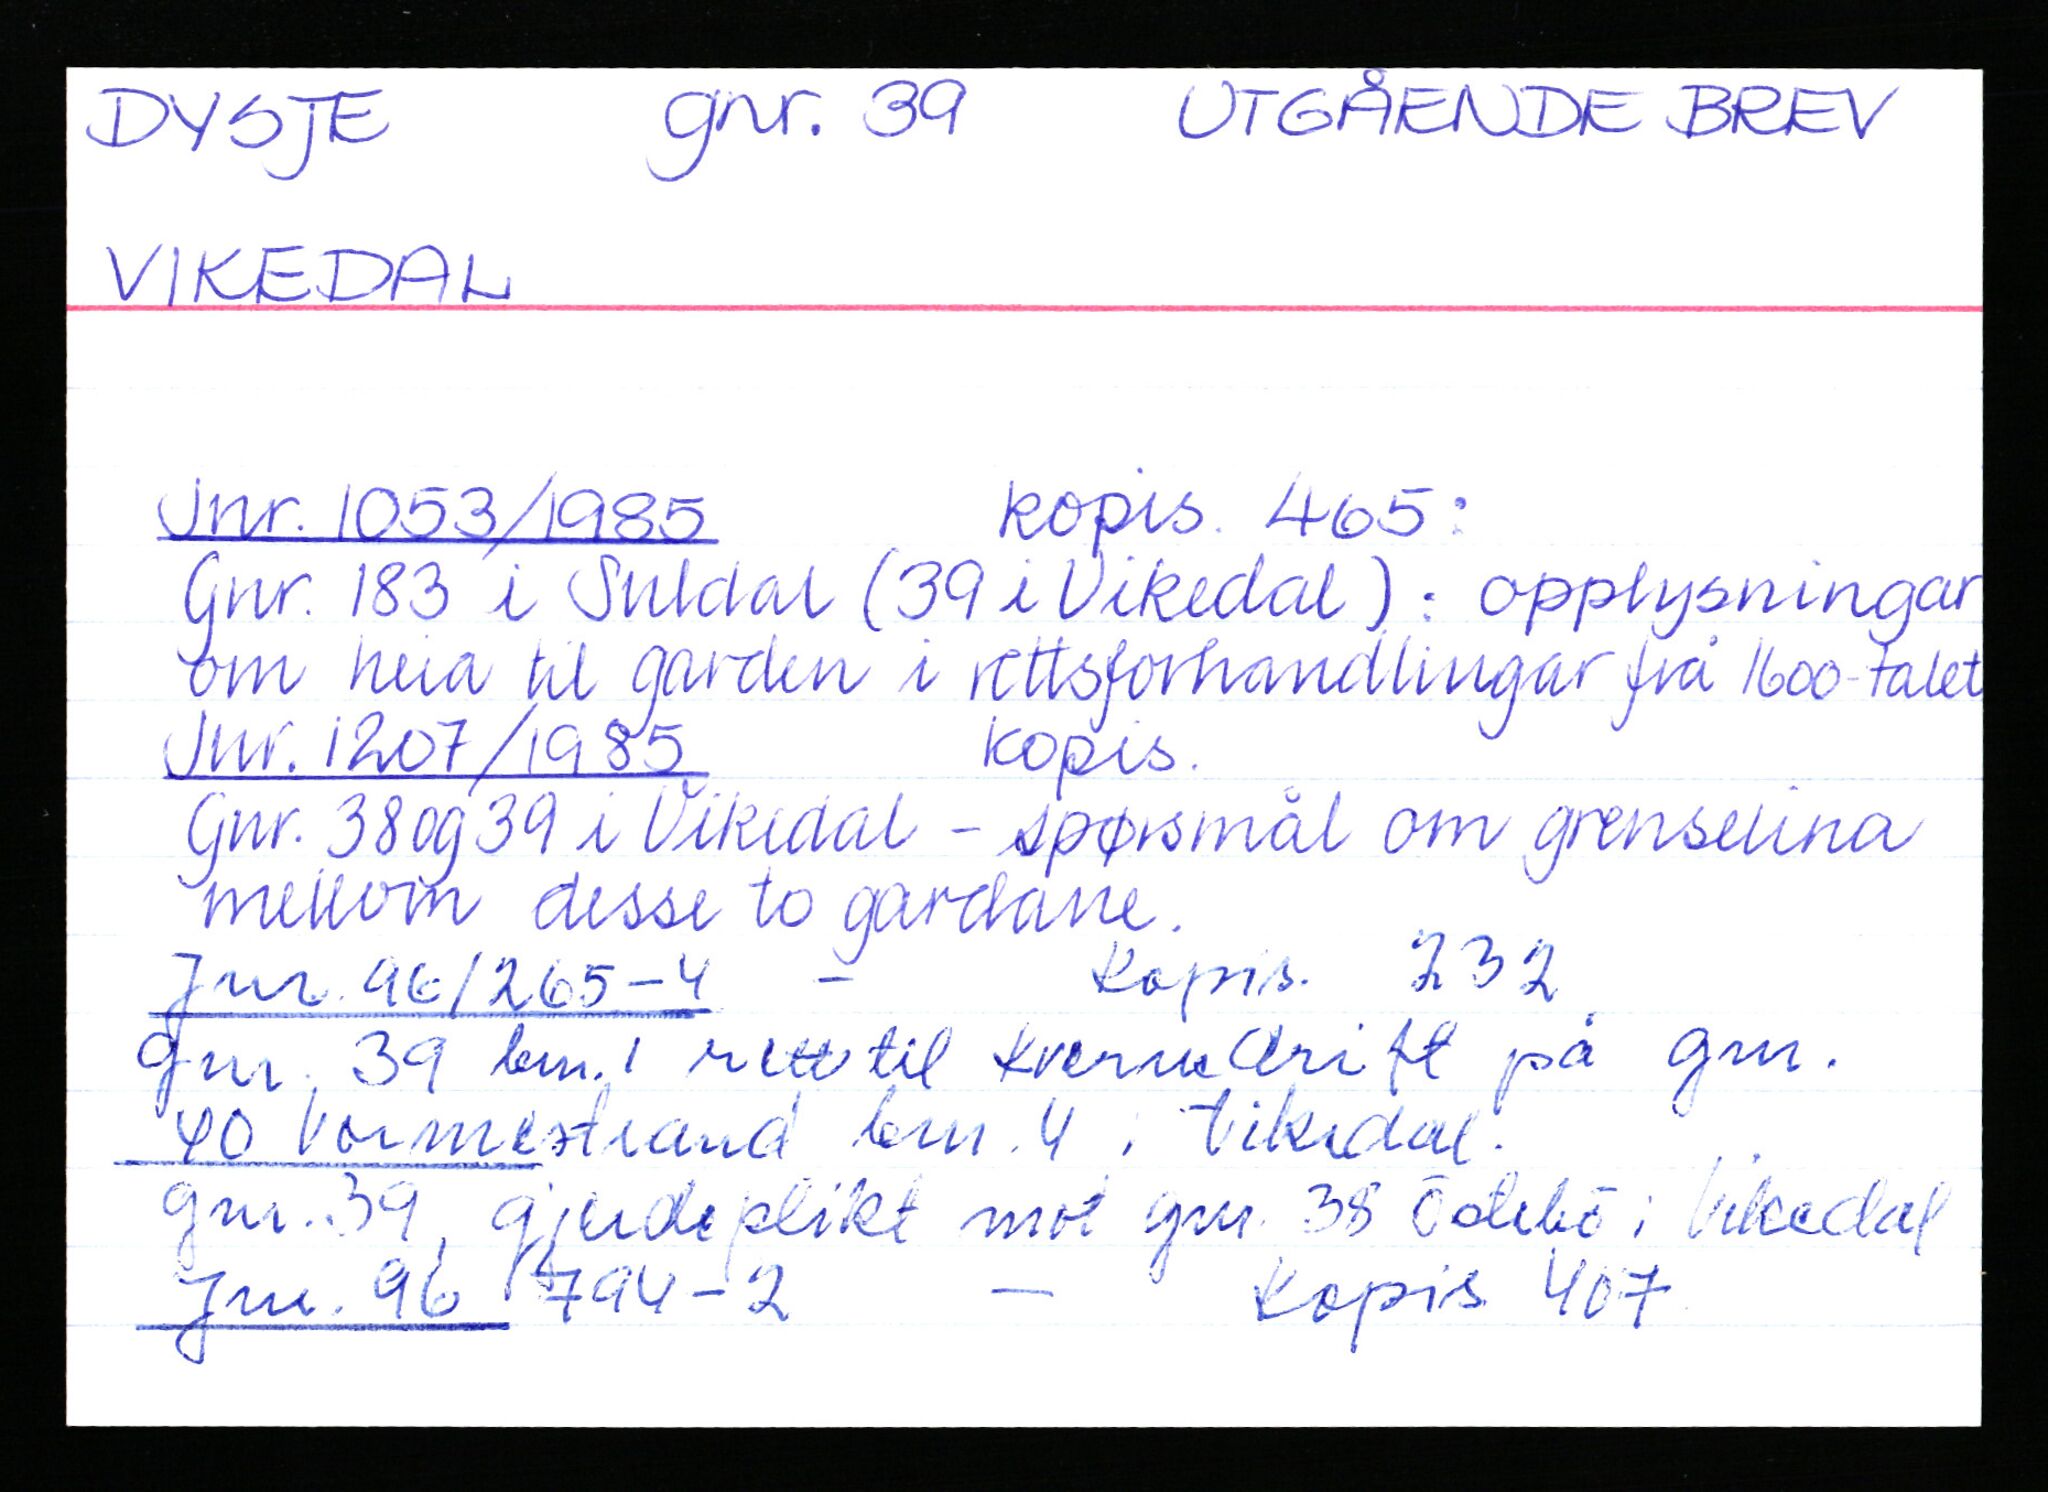 DYSJE gnr. 39 UTGÅENDE BREV
VIKEDAL
Jnr. 1053/1985 kopis. 465:
Gnr. 183 i Suldal (39 i Vikedal): opplysningar
om heia til garden i rettsforhandlingar frå 1600-talet
Jnr. 1207/1985 kopis.
Gnr. 38 og 39 i Vikedal - spørsmål om grenselina
mellom desse to gardane.
Jnr. 96/265-4 - Kopis. 232
gnr. 39 bnr. 1 rett til kvernedrift på gnr.
40 Vormestrand bnr. 4 i Vikedal.
gnr. 39, gjerdeplikt mot gnr. 38 Ödebö i Vikedal
Jnr. 96 794-2 - Kopis 407